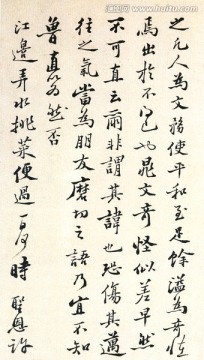 之凡人為文務使平和至足餘溢為奇怪
焉出於不得已晁文奇怪似差早然
不可直云爾非謂其諱也恐傷其邁
往之氣當為朋友磨切之語乃宜不知
魯直以為然否
江邊弄水挑菜便過一日時 聖恩許